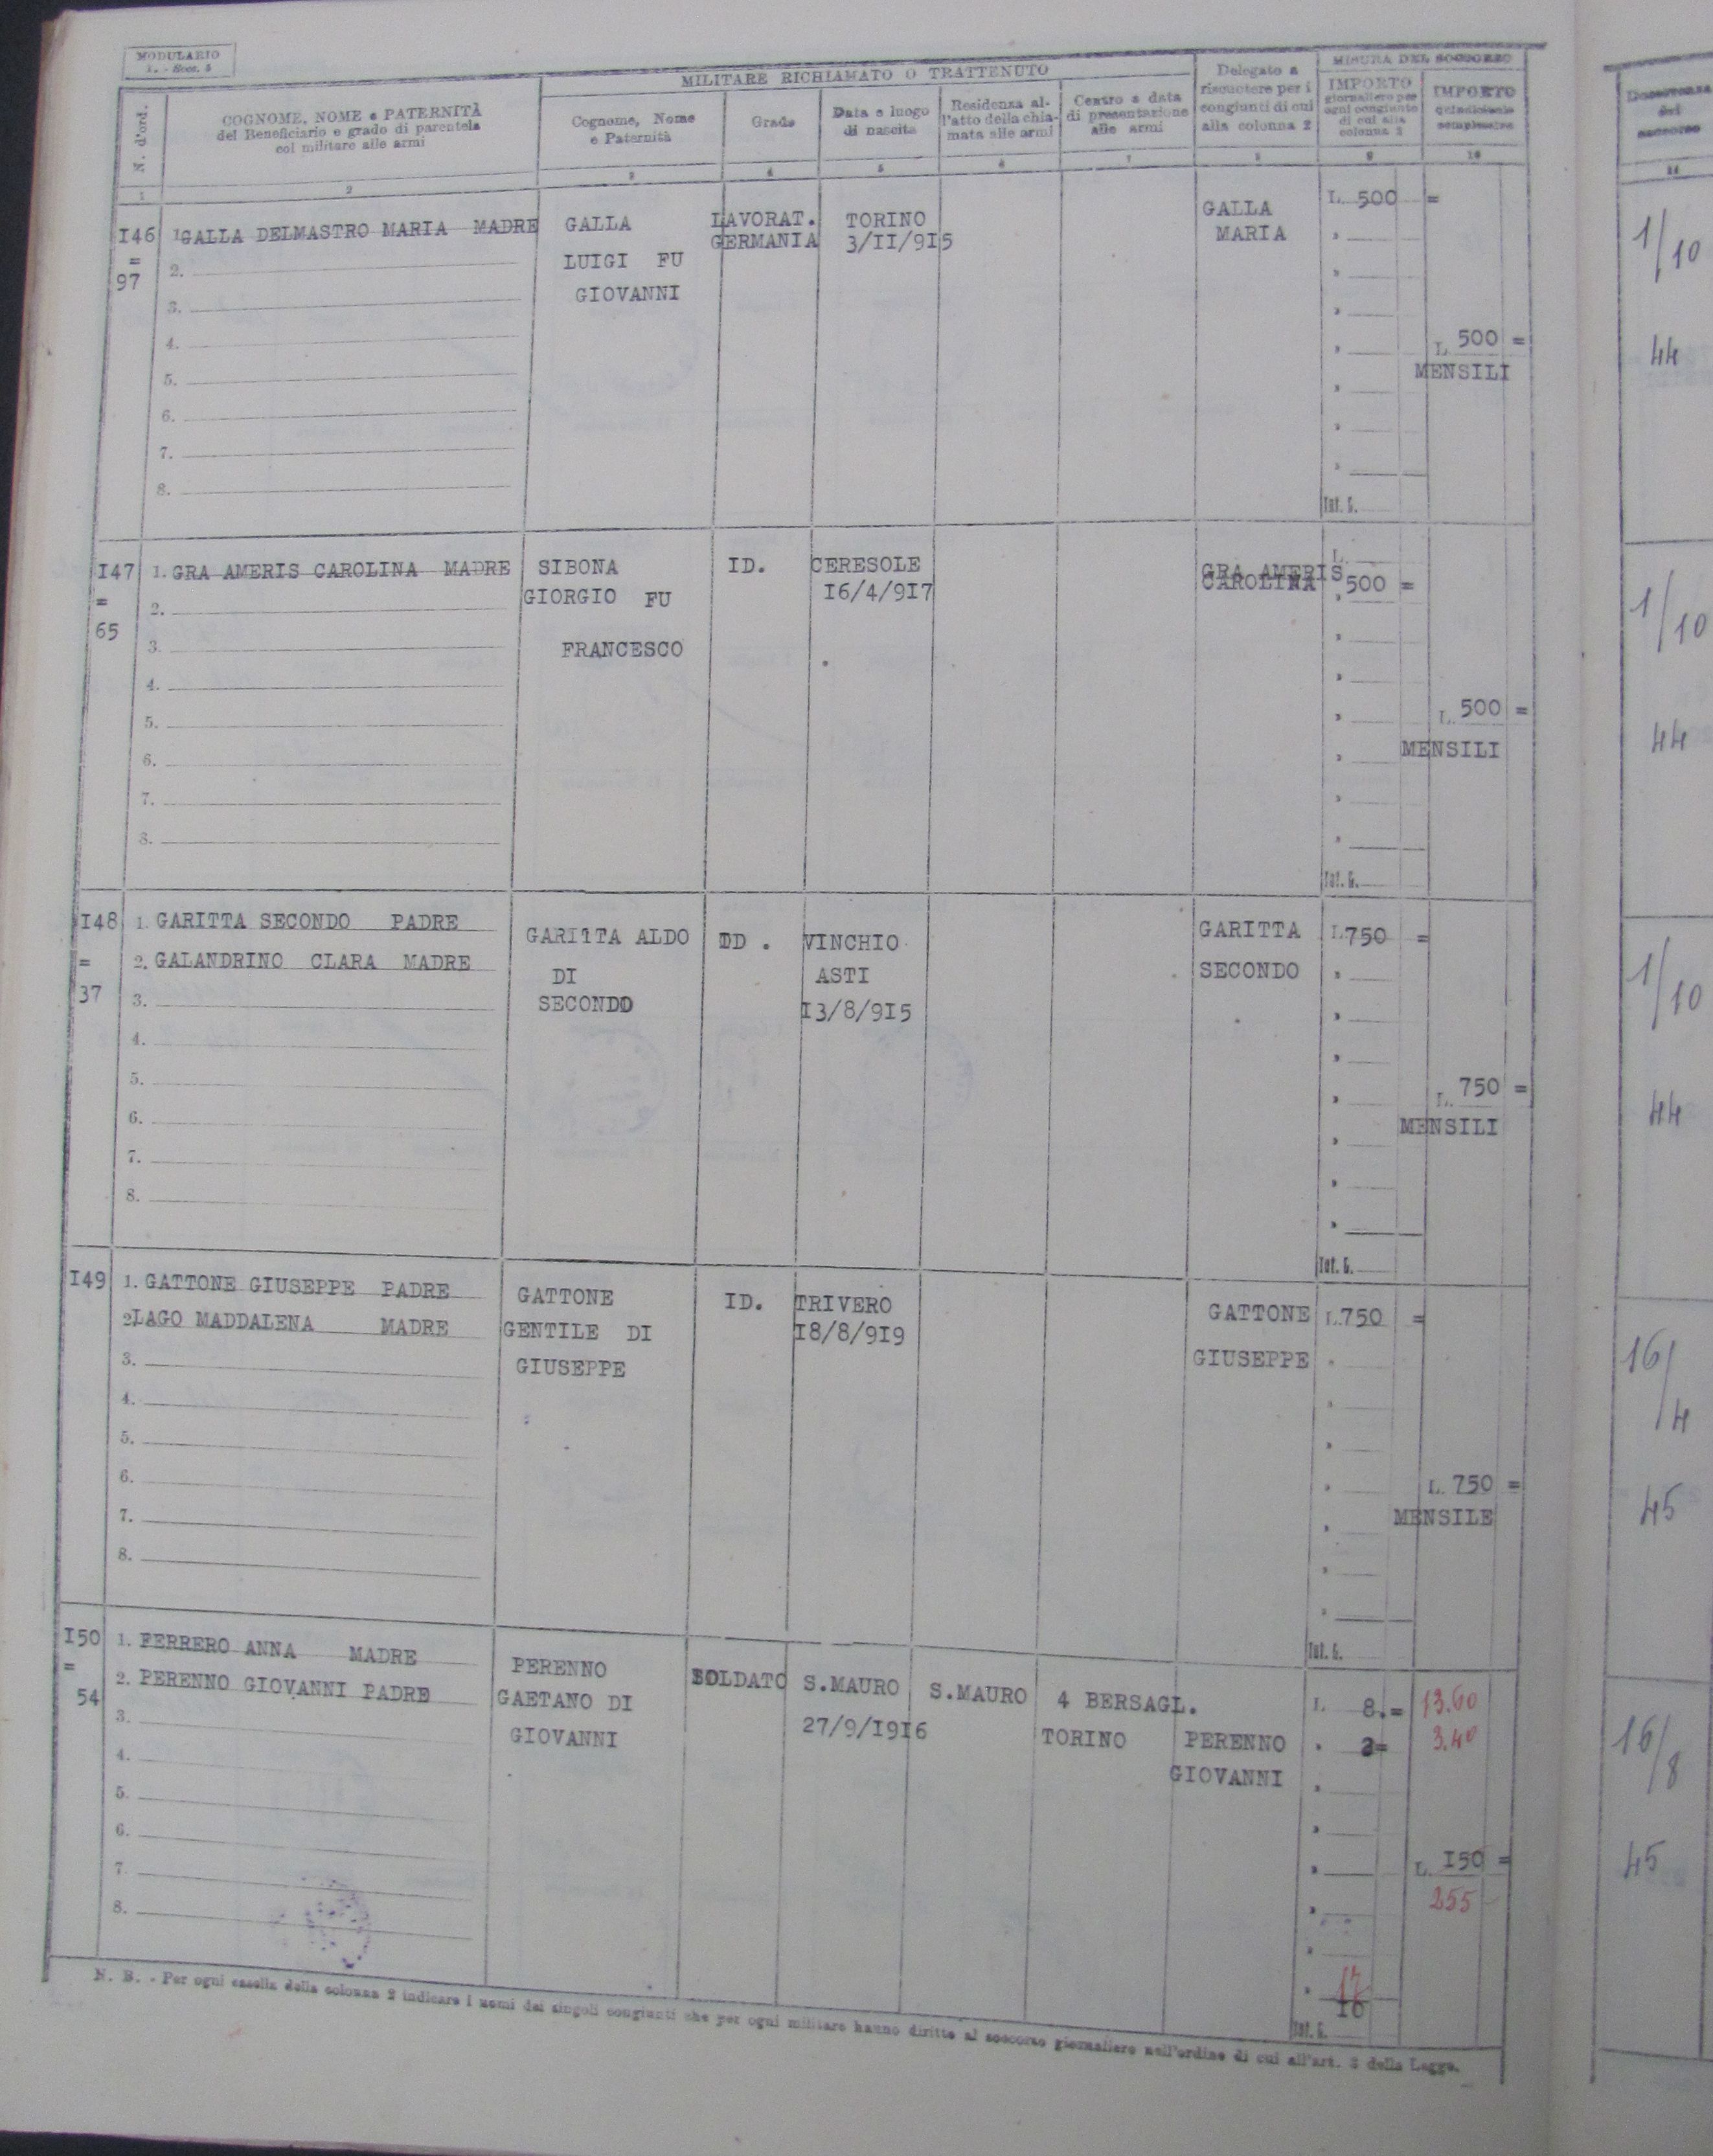 MODULARIO
MILITARE RICHIAMATO O TRATTENUTO
MISURA DEL SOCCORSO
N. d'ord.
COGNOME, NOME e PATERNITÀ
del Beneficiario e grado di parentela
col militare alle armi
Cognome, Nome
e Paternità
Grado
Data e luogo
di nascita
Residenza al-
l'atto della chia-
mata alle armi
Centro e data
di presentazione
alle armi
Delegato a
riscuotere per i
congiunti di cui
alla colonna 2
IMPORTO
giornaliero per
ogni congiunto
di cui alla
colonna 2
IMPORTO
quindicinale
complessivo
Decorrenza
del
soccorso
1 2 3 4 5 6 7 8 9 10 11
I46
=
97
1. GALLA DELMASTRO MARIA MADRE
2.
3.
4.
5.
6.
7.
8.
GALLA
LUIGI FU
GIOVANNI
LAVORAT.
GERMANIA
TORINO
3/II/9I5
GALLA
MARIA
L. 500 =
L. 500 =
MENSILI
Tot. G.
1/10
44
I47
=
65
1. GRA AMERIS CAROLINA MADRE
2.
3.
4.
5.
6.
7.
8.
SIBONA
GIORGIO FU
FRANCESCO
ID.
CERESOLE
I6/4/9I7
GRA AMERIS
CAROLINA
L.
500 =
L. 500 =
MENSILI
Tot. G.
1/10
44
I48
=
37
1. GARITTA SECONDO PADRE
2. GALANDRINO CLARA MADRE
3.
4.
5.
6.
7.
8.
GARITTA ALDO
DI
SECONDO
ID .
VINCHIO
ASTI
I3/8/9I5
GARITTA
SECONDO
L. 750 =
L. 750 =
MENSILI
Tot. G.
1/10
44
I49
1. GATTONE GIUSEPPE PADRE
2. LAGO MADDALENA MADRE
3.
4.
5.
6.
7.
8.
GATTONE
GENTILE DI
GIUSEPPE
ID.
TRIVERO
I8/8/9I9
GATTONE
GIUSEPPE
L. 750 =
L. 750 =
MENSILE
Tot. G.
16/4
45
I50
=
54
1. FERRERO ANNA MADRE
2. PERENNO GIOVANNI PADRE
3.
4.
5.
6.
7.
8.
PERENNO
GAETANO DI
GIOVANNI
SOLDATO
S.MAURO
27/9/I9I6
S.MAURO
4 BERSAGL.
TORINO
PERENNO
GIOVANNI
L. 8.=
2=
13.60
3.40
L. I50 =
255
17
I0
Tot. G.
16/8
45
N. B. - Per ogni casella della colonna 2 indicare i nomi dei singoli congiunti che per ogni militare hanno diritto al soccorso giornaliero nell'ordine di cui all'art. 3 della Legge.